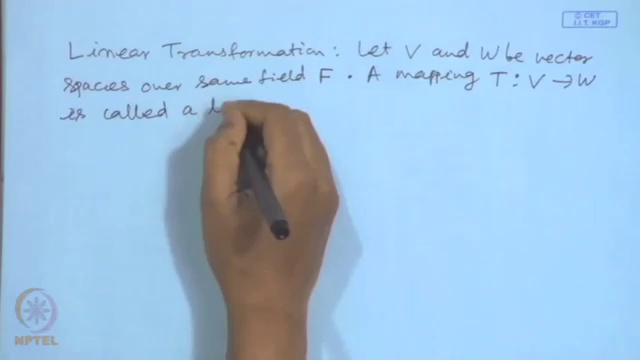 © CET
I.I.T. KGP
Linear Transformation: Let V and W be vector
spaces over same field F. A mapping T: V → W
is called a l
NPTEL